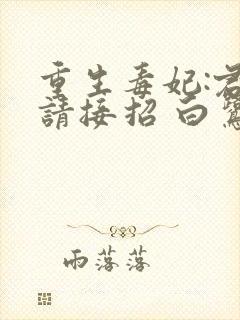 重生毒妃:君
請接招 白鷺
雨落落